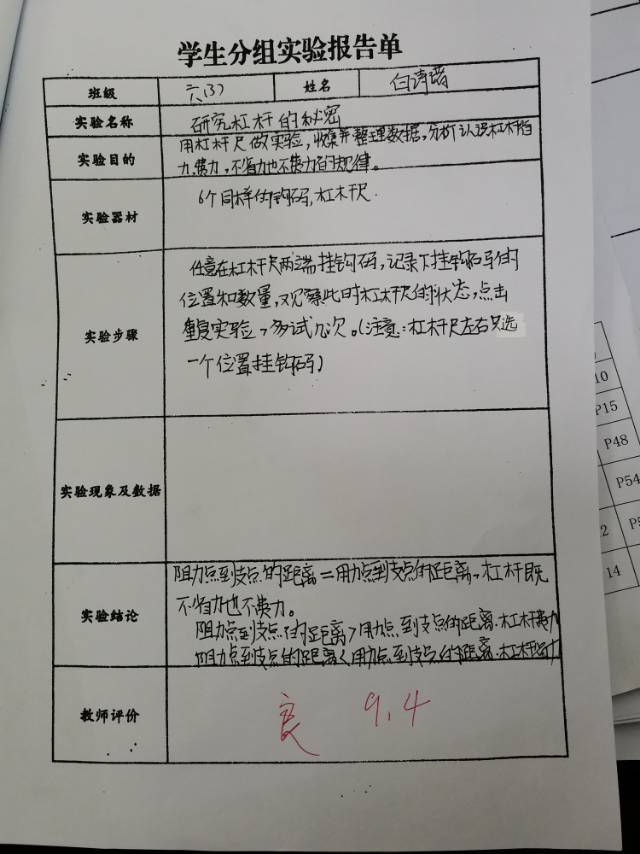 学生分组实验报告单
班级 六(3) 姓名 白诗
实验名称 研究杠杆的秘密
实验目的 用杠杆尺做实验,收集并整理数据,分析认识杠杆省
力、费力,不省力也不费力的规律。
实验器材 6个同样的钩码,杠杆尺.
任意在杠杆尺两端挂钩码,记录下挂钩码的
位置和数量,观察此时杠杆尺的状态,点击
实验步骤 重复实验,多试几次。(注意:杠杆尺左右只选
一个位置挂钩码)
实验现象及数据
阻力点到支点的距离=用力点到支点的距离,杠杆既
实验结论 不省力也不费力。
阻力点到支点的距离>用力点到支点的距离.杠杆费力
阻力点到支点的距离<用力点到支点的距离.杠杆省力
教师评价 良 9.4
10
P15
P48
P54
2
14